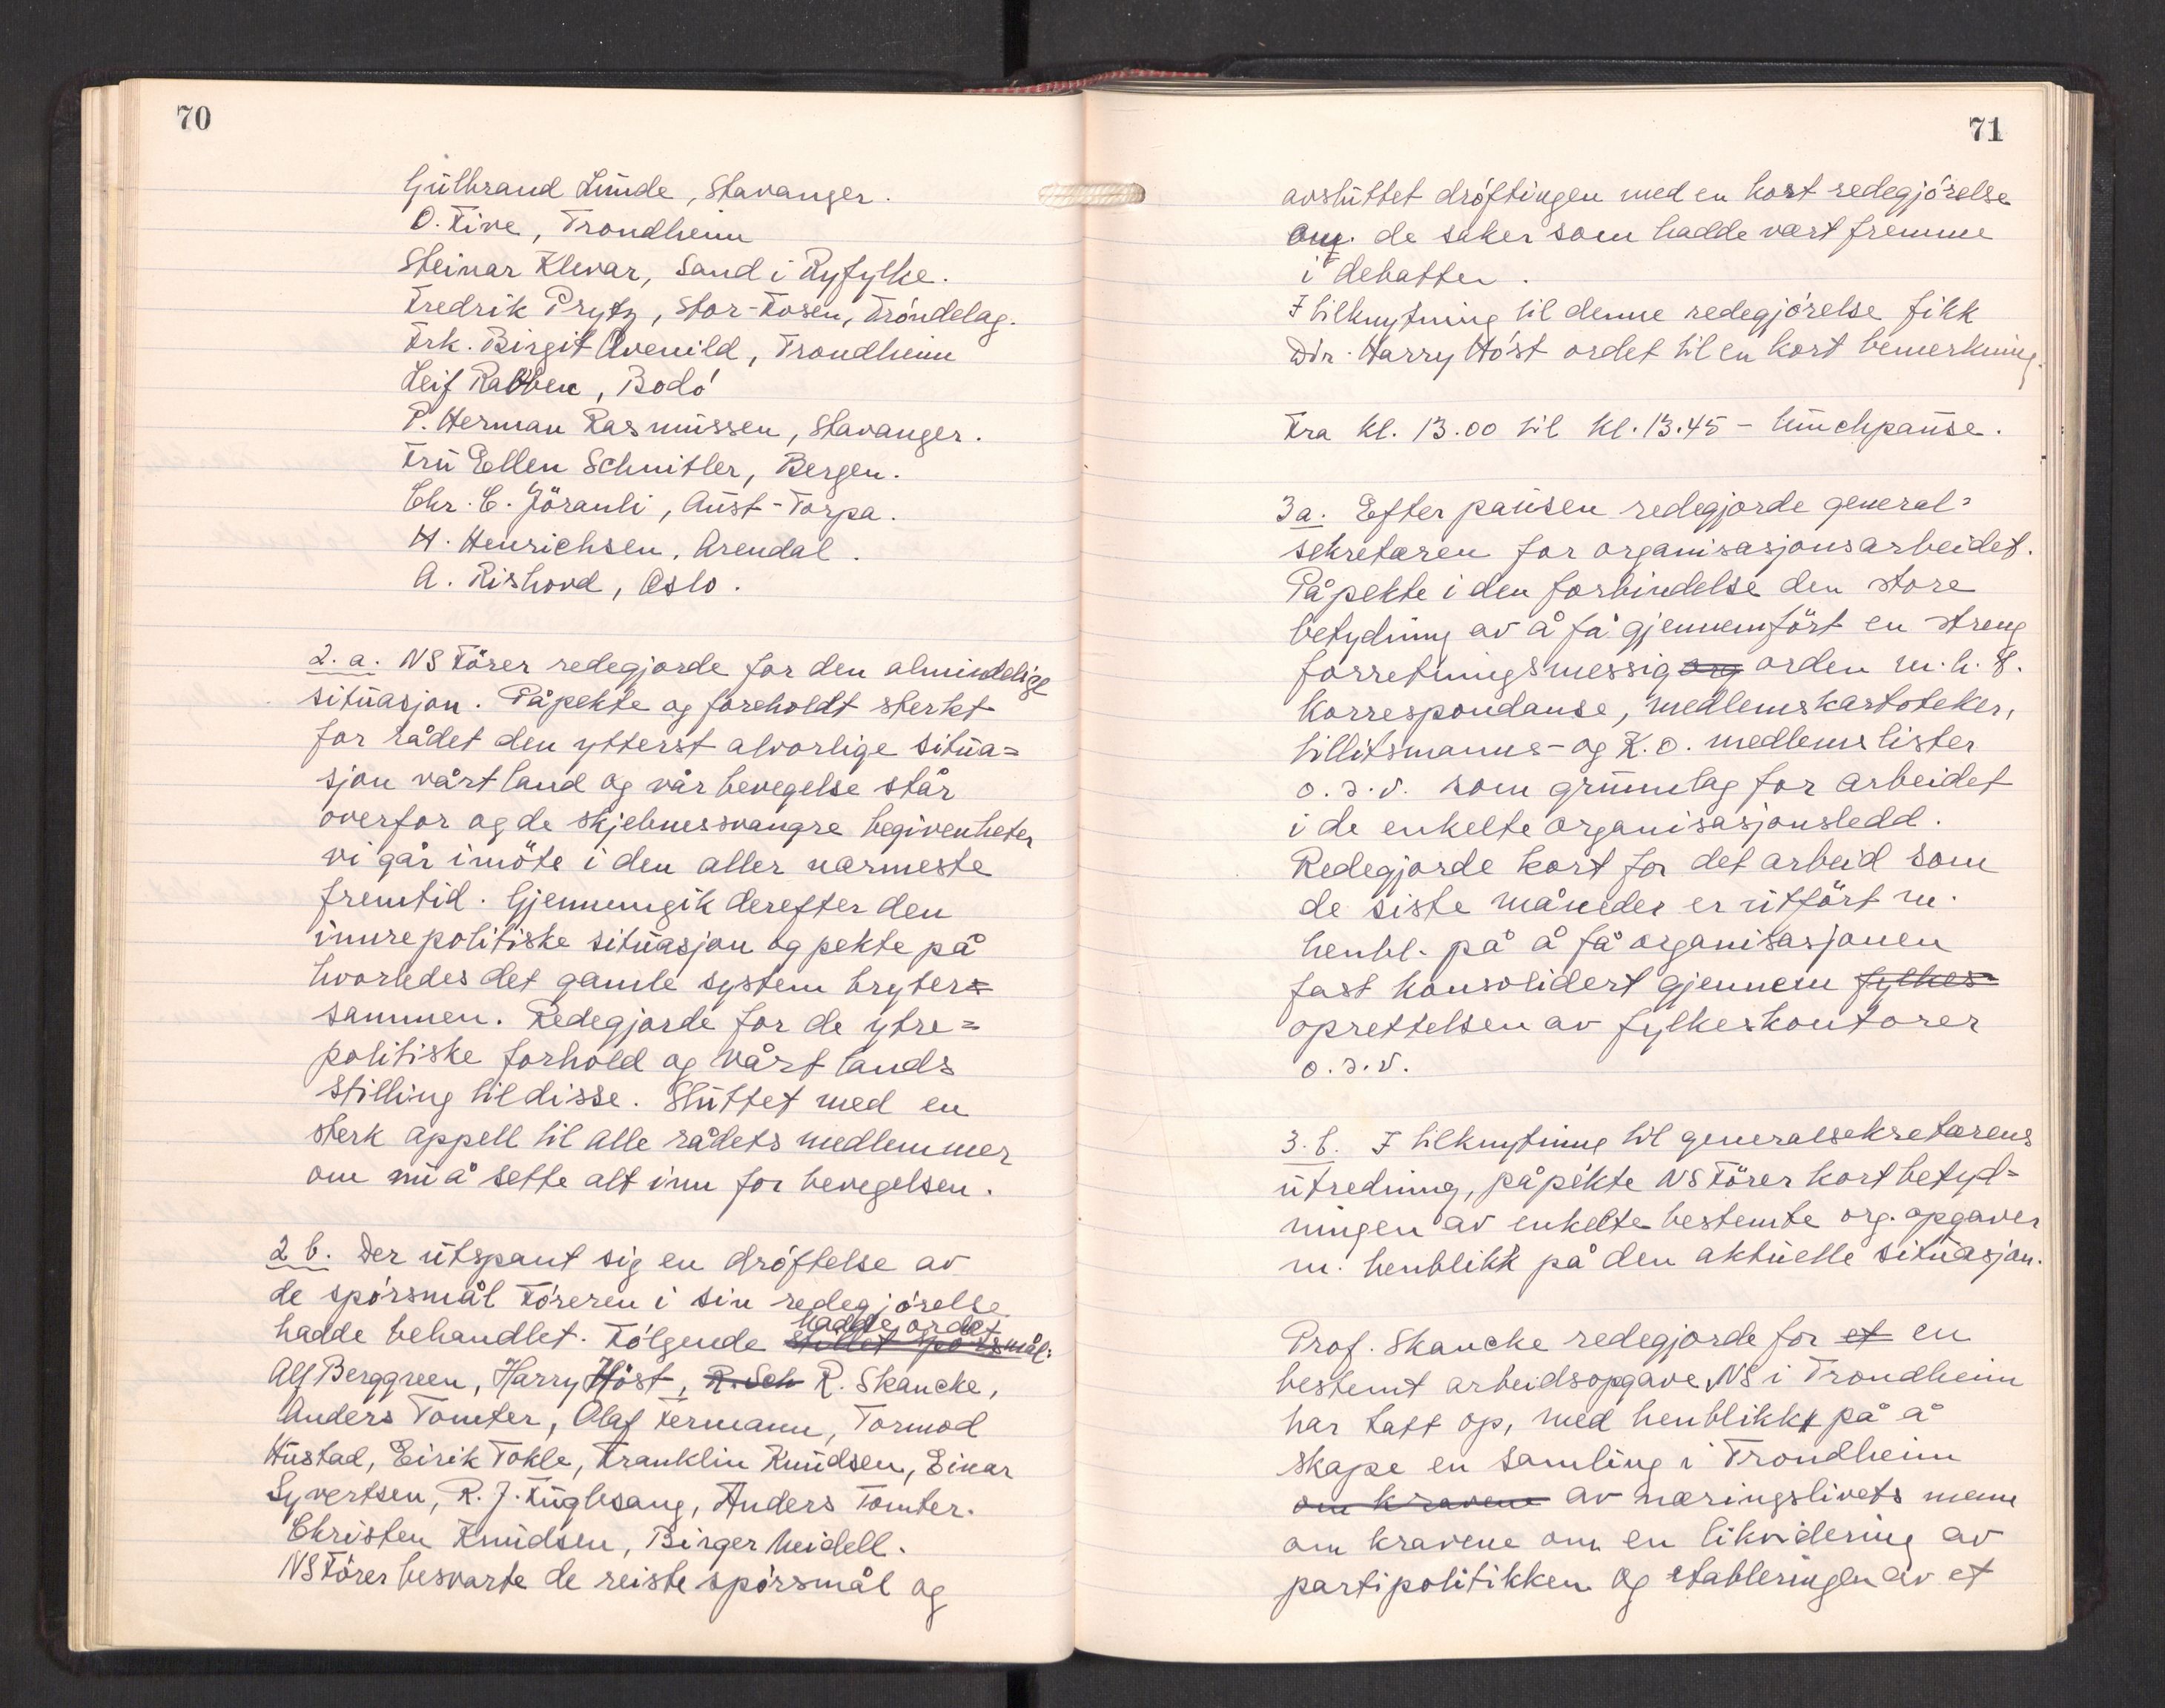 70
Gulbrand Lunde, Stavanger.
O. Five, Trondheim
Steinar Klevar, Sand i Ryfylke.
Fredrik Prytz, Stor-Fosen, Tröndelag.
Frk. Birgit Avenild, Trondheim
Leif Rabben, Bodó
P. Herman Rasmussen, Stavanger.
Fru Ellen Schnitler, Bergen.
Chr. C. Jöranli, Aust-Torpa.
H. Henrichsen, Arendal.
A. Rishovd, Oslo.
2. a. NS Förer redegjorde for den almindelige
situasjon. Påpekte og foreholdt sterkt
for rådet den ytterst alvorlige situa=
sjon vårt land og vår bevegelse står
overfor og de skjebnessvangre begivenheter
vi går imöte i den aller nærmeste
fremtid. Gjennemgik derefter den
inure politiske situasjon og pekte på
hvorledes det gamle system bryter=
sammen. Redegjorde for de ytre=
politiske forhold og vårt lands
stilling til disse. Sluttet med en
sterk appell til alle rådets medlemmer
om nu å sette alt inn for bevegelsen.
2 b. Der utspant sig en dröftelse av
de spörsmål Föreren i sin redegjörelse
hadde behandlet. Fölgende hadde ordet
stillet spörsmål:
Alf Berggreen, Harry Höst, R. Sch R. Skancke,
Anders Tomter, Olaf Fermann, Tormod
Hustad, Eirik Tokle, Franklin Knudsen, Einar
Syvertsen, R. J. Fuglesang, Anders Tomter.
Christen Knudsen, Birger Meidell.
NS Förer besvarte de reiste spörsmål og
71
avsluttet dröftingen med en kort redegjörelse
om de saker som hadde vært fremme
i debatten.
I tilknytning til denne redegjörelse fikk
Dir. Harry Höst ordet til en kort bemerkning.
Fra kl. 13.00 til kl. 13.45 - lunchpause.
3a. Efter pausen redegjorde general=
sekretæren for organisasjonsarbeidet.
Påpekte i den forbindelse den store
betydning av å få gjennemfört en streng
forretningsmessig org orden m.h.t.
korrespondanse, medlemskartoteker,
tillitsmanns- og K.O. medlemslister
o.s.v. som grunnlag for arbeidet
i de enkelte organisasjonsledd.
Redegjorde kort for det arbeid som
de siste måneder er utfört m.
henbl. på å få organisasjonen
fast konsolidert gjennem fylkes-
oprettelsen av fylkeskontorer
o.s.v.
3. b. I tilknytning til generalsekretærens
utredning, påpekte NS Förer kort betyd=
ningen av enkelte bestemte org. opgaver
m. henblikk på den aktuelle situasjon.
Prof. Skancke redegjorde for et en
bestemt arbeidsopgave NS i Trondheim
har tatt op, med henblikk på å
skape en samling i Trondheim
om kravene av næringslivets menn
om kravene om en likvidering av
partipolitikken og etableringen av et